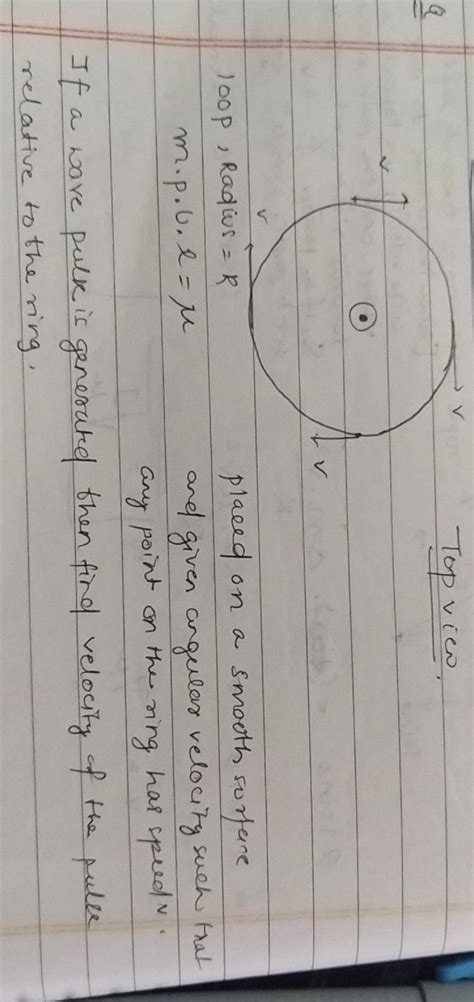 Q
Top view,
v
v
v
v
loop, Radius = R
m.p.u.l = μ
placed on a smooth surface
and given angular velocity such that
any point on the ring has speed v.
If a wave pulse is generated then find velocity of the pulse
relative to the ring.